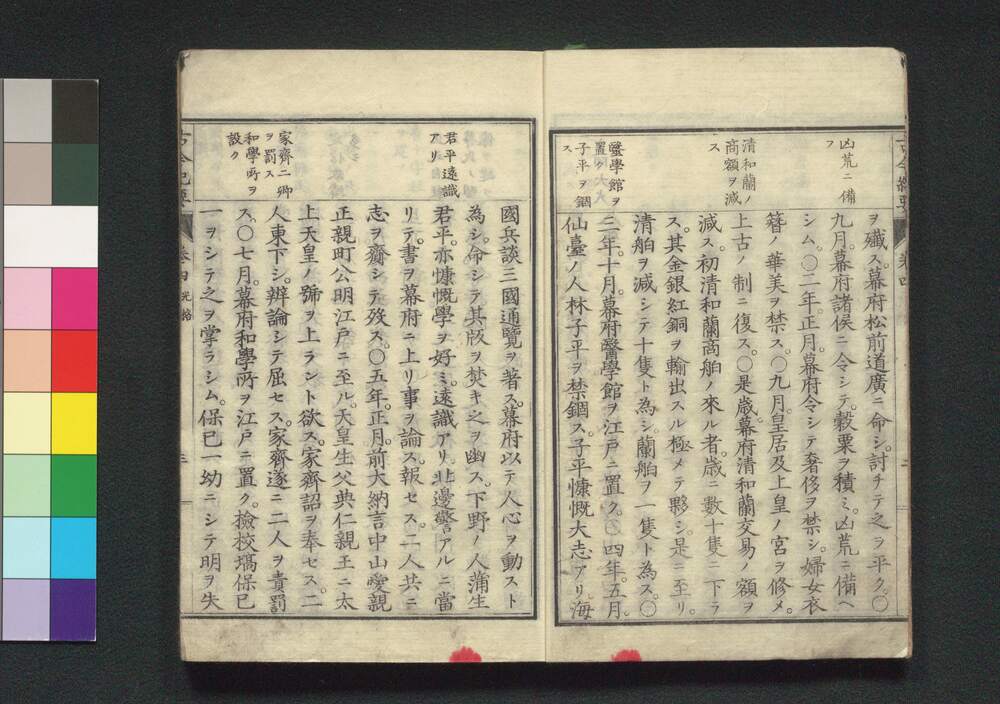 凶荒ニ備
フ
清和蘭ノ
商額ヲ減
ス
醫學館ヲ
置ク
子平ヲ錮
ス
ヲ殱ス。幕府松前道廣ニ命シ。討チテ之ヲ平ク。〇
九月。幕府諸侯ニ令シテ。穀粟ヲ積ミ。凶荒ニ備ヘ
シム。〇二年。正月。幕府令シテ奢侈ヲ禁シ。婦女衣
簪ノ華美ヲ禁ス。〇九月。皇居及上皇ノ宮ヲ修メ。
上古ノ制ニ復ス。〇是歳。幕府清和蘭交易ノ額ヲ
減ス。初清和蘭商舶ノ來ル者。歳ニ數十隻ニ下ラ
ス。其金銀紅銅ヲ輸出スル極メテ夥シ。是ニ至リ。
清舶ヲ減シテ十隻ト為シ。蘭舶ヲ一隻ト為ス。〇
三年。十月。幕府醫學館ヲ江戸ニ置ク。〇四年。五月。
仙臺ノ人林子平ヲ禁錮ス。子平慷慨大志アリ。海
君平遠識
アリ
家齊二卿
ヲ罰ス
和學所ヲ
設ク
國兵談三國通覽ヲ著ス。幕府以テ人心ヲ動スト
為シ。命シテ其版ヲ焚キ之ヲ幽ス。下野ノ人蒲生
君平。亦慷慨學ヲ好ミ。遠識アリ。北邊警アルニ當
リテ。書ヲ幕府ニ上リ事ヲ論ス。報セス。二人共ニ
志ヲ齎シテ歿ス。〇五年。正月。前大納言中山愛親
正親町公明江戸ニ至ル。天皇生父典仁親王ニ太
上天皇ノ號ヲ上ラント欲ス。家齊詔ヲ奉セス。二
人東下シ。辨論シテ屈セス。家齊遂ニ二人ヲ責罰
ス。〇七月。幕府和學所ヲ江戸ニ置ク。撿校塙保已
一ヲシテ之ヲ掌ラシム。保已一幼ニシテ明ヲ失
卷四